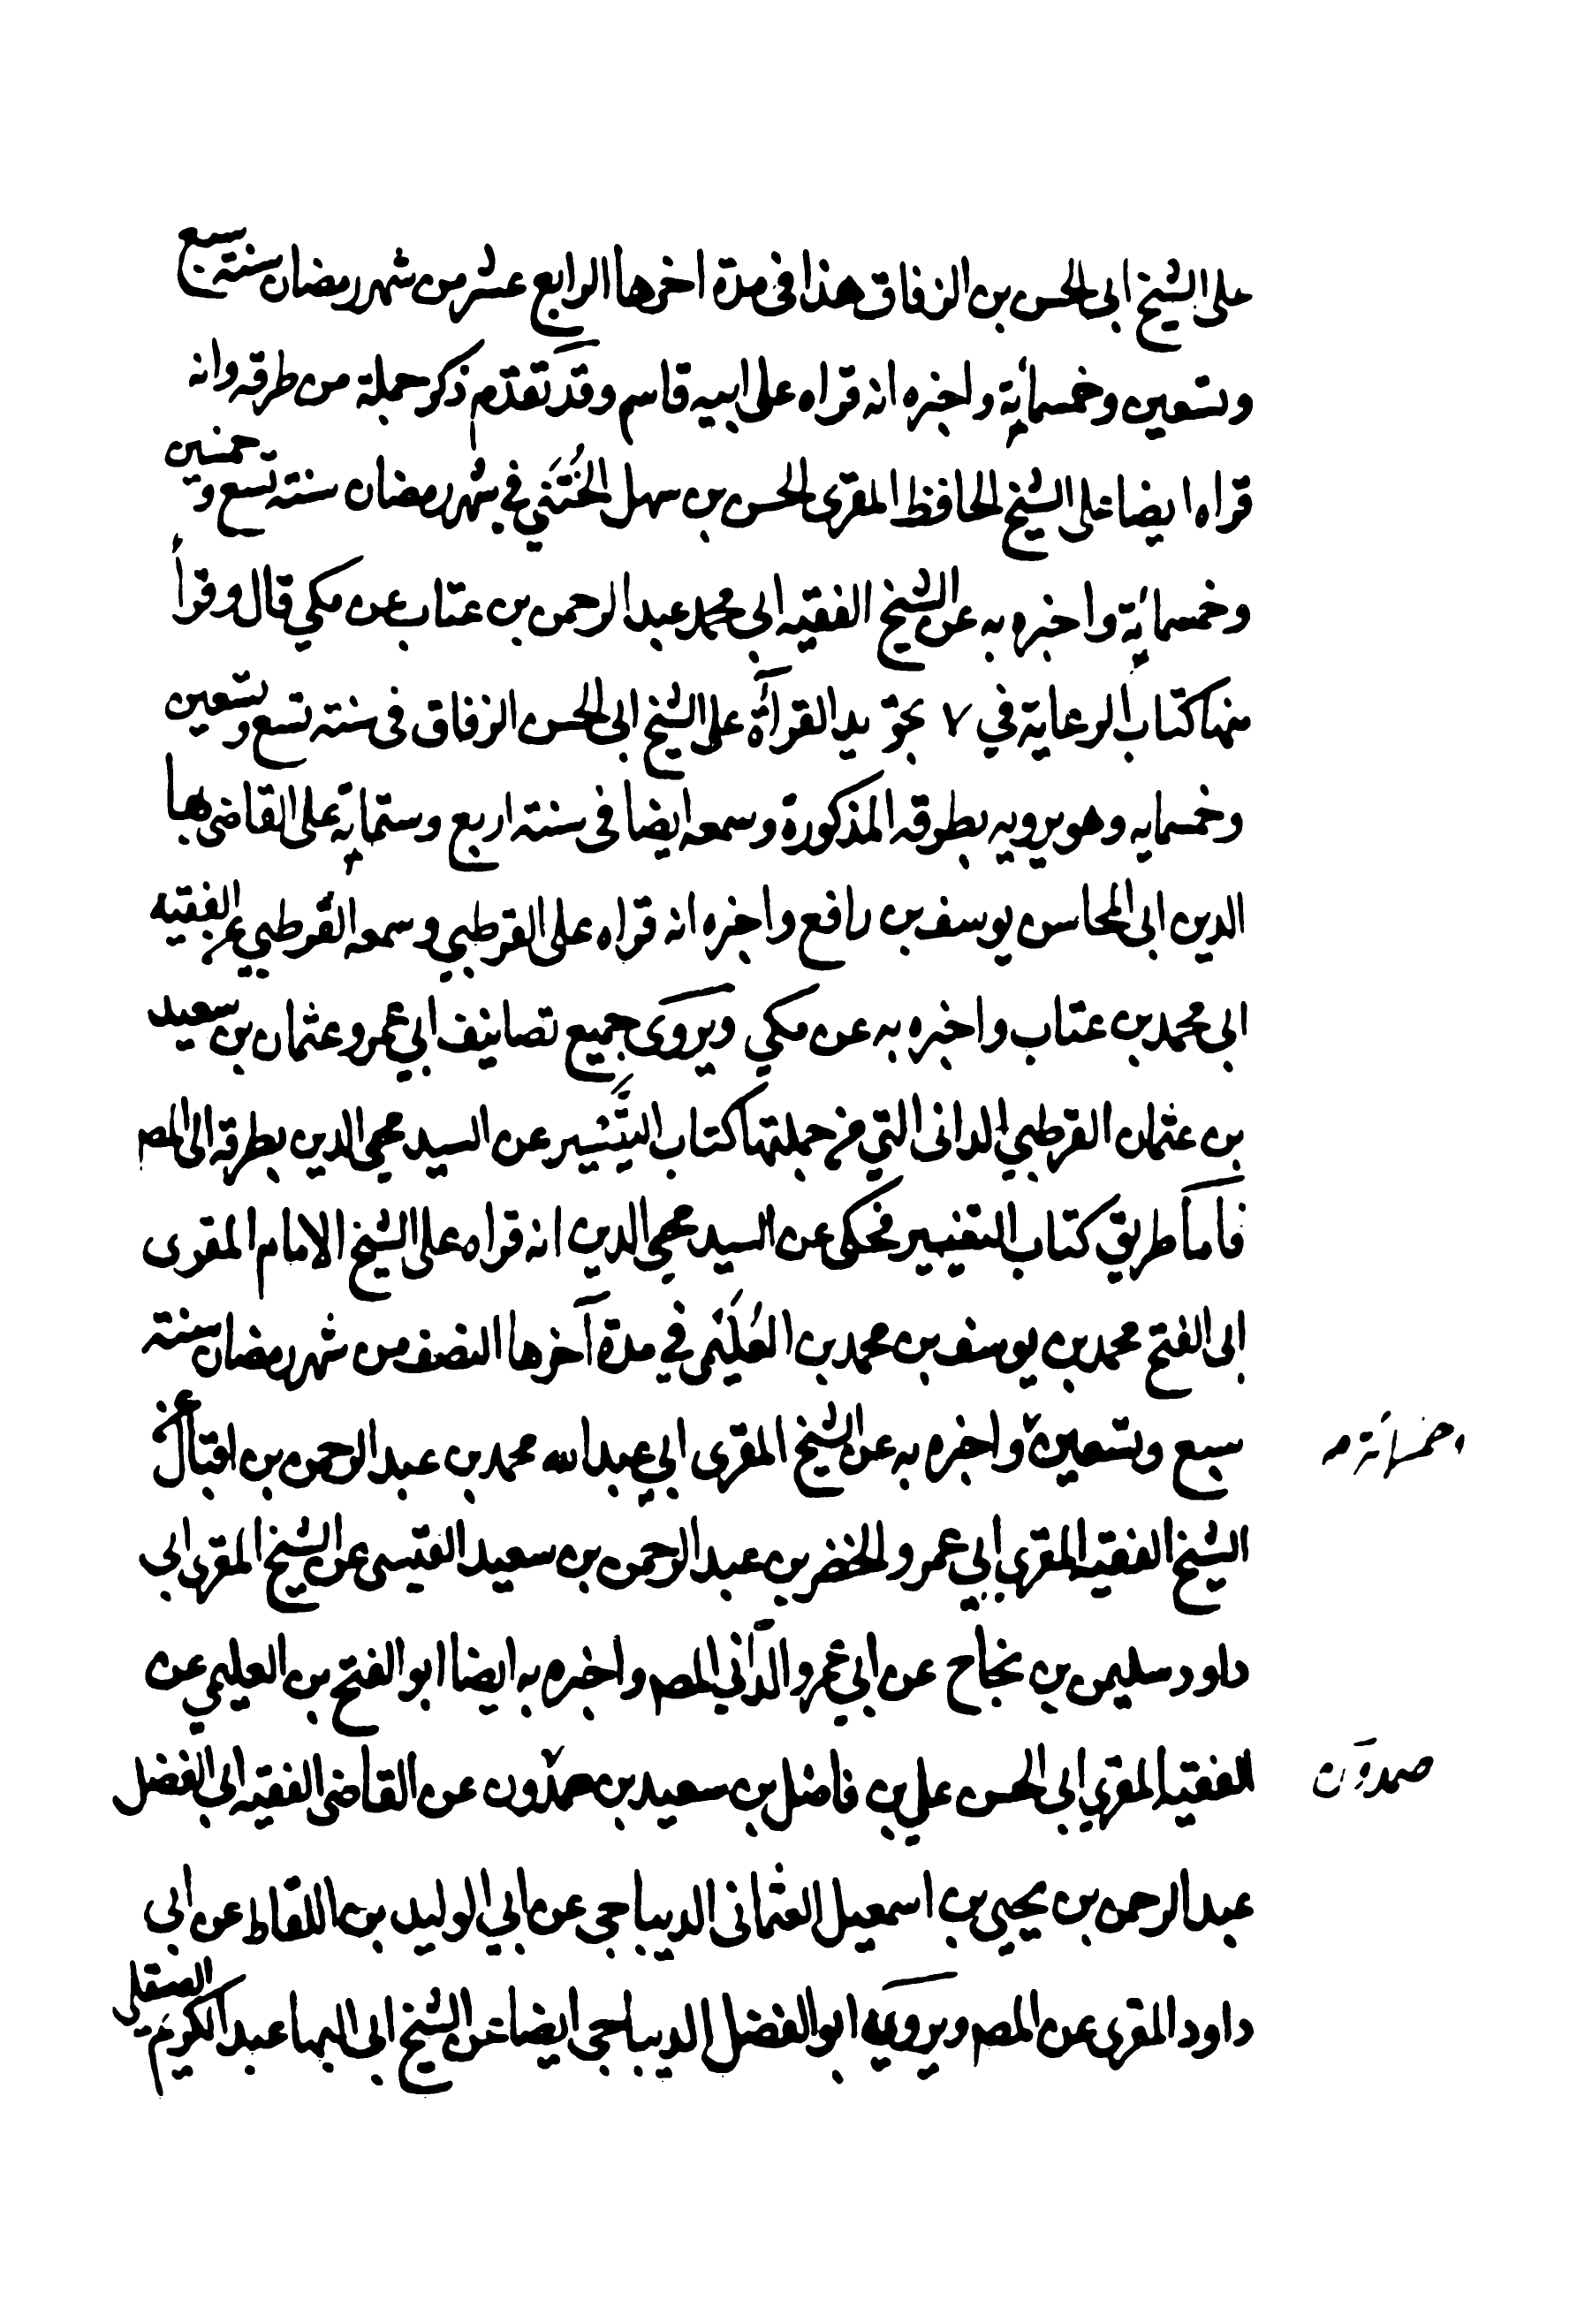 على الشيخ ابى الحسن بن الزقاق هذا فى مدة اخرها الرابع عشر من شهر رمضان سنة سبع
وتسعين وخمسمائة واخبره انه قراه على ابيه قاسم وقد تقدم ذكر جملة من طرقه وانه
قراه ايضا على الشيخ الحافظ المقرى الحسن بن سهل الخُتَني في شهر رمضان سنة تسع وخمسين
وخمسمائة واخبره به عن الشيخ الفقيه ابي محمد عبد الرحمن بن عتاب عن مكي قال وقرأ
منها كتاب الرعاية في ٧ تجويد القرآءة على الشيخ ابى الحسن الزقاق فى سنة تسع وتسعين
وخمسمايه وهو يرويه بطرقه المذكورة وسمعه ايضا فى سنة اربع وستمائة على القاضى بهاء
الدين ابى المحاسن يوسف بن رافع واخبره انه قراه على القرطبي وسمعه القرطبي عن الفقيه
ابى محمد بن عتاب واخبره به عن مكي ويروى جميع تصانيف ابي عمرو عثمان بن سعيد
بن عثمان القرطبي الدانى التي من جملتها كتاب التيسير عن السيد محيى الدين بطرقه الى المص
فاما طريق كتاب التفسير فحكى عن السيد محيي الدين انه قراه على الشيخ الامام المقرى
ابى الفتح محمد بن يوسف بن محمد بن العُلَيمى في مدة آخرها النصف من شهر رمضان سنة
سبع وتسعين واخبره به عن الشيخ المقرى ابي عبد الله محمد بن عبد الرحمن بن اقبال عن
وخمسمائة صح
الشيخ الفقيه المقرى ابي عمرو الخضر بن عبد الرحمن بن سعيد القيسى عن الشيخ المقرى ابي
داود سليمن بن نجاح عن ابي عمرو الدّاني المص واخبره به ايضا ابو الفتح بن العليمي عن
الفقيه المقرى ابى الحسن علي بن فاضل بن سعيد بن حمدون عن القاضى الفقيه ابى الفضل
صمدون
عبد الرحمن بن يحيى بن اسمعيل العثمانى الديباجى عن ابي الوليد بن اللقاط عن ابى
داود المقرى عن المص ويرويه ابو الفضل الديباجى ايضا عن الشيخ ابى البها عبد الكريم الصقلي